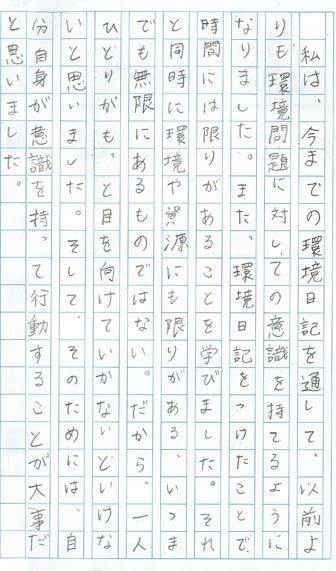 私は、今までの環境日記を通して、以前よ
りも、環境問題に対しての意識を持てるように
なりました。また、環境日記をつけたことで、
時間には限りがあることを学びました。それ
と同時に環境や資源にも限りがある、いつま
でも無限にあるものではない。だから、一人
ひとりがも。と目を向けていかないといけな
いと思いました。そして、そのためには、自
分自身が意識を持って行動することが大事だ
と思いました。